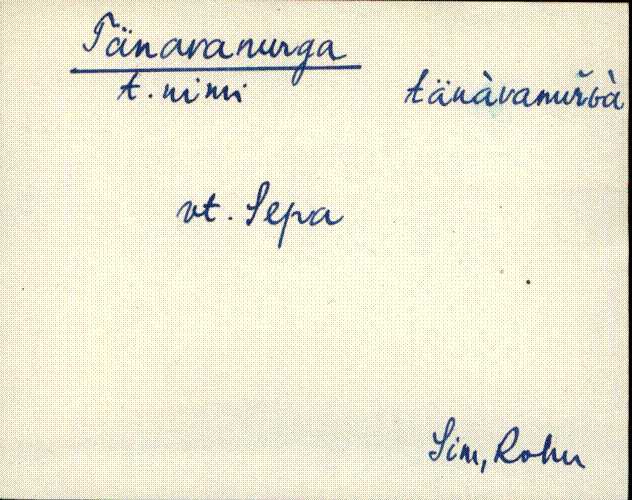 Tänavanurga
t. nimi
vt. Sepa
Sim, Rohu